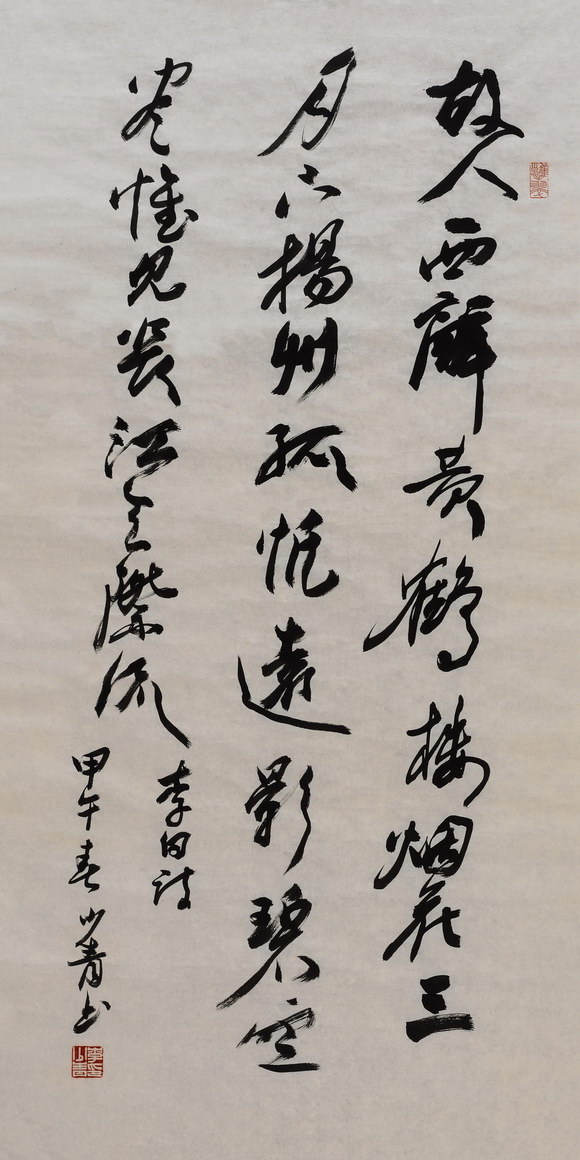 故人西辭黄鶴楼烟花三
月下揚州孤帆遠影碧空
尽惟見長江天際流
李白诗
甲午春青书